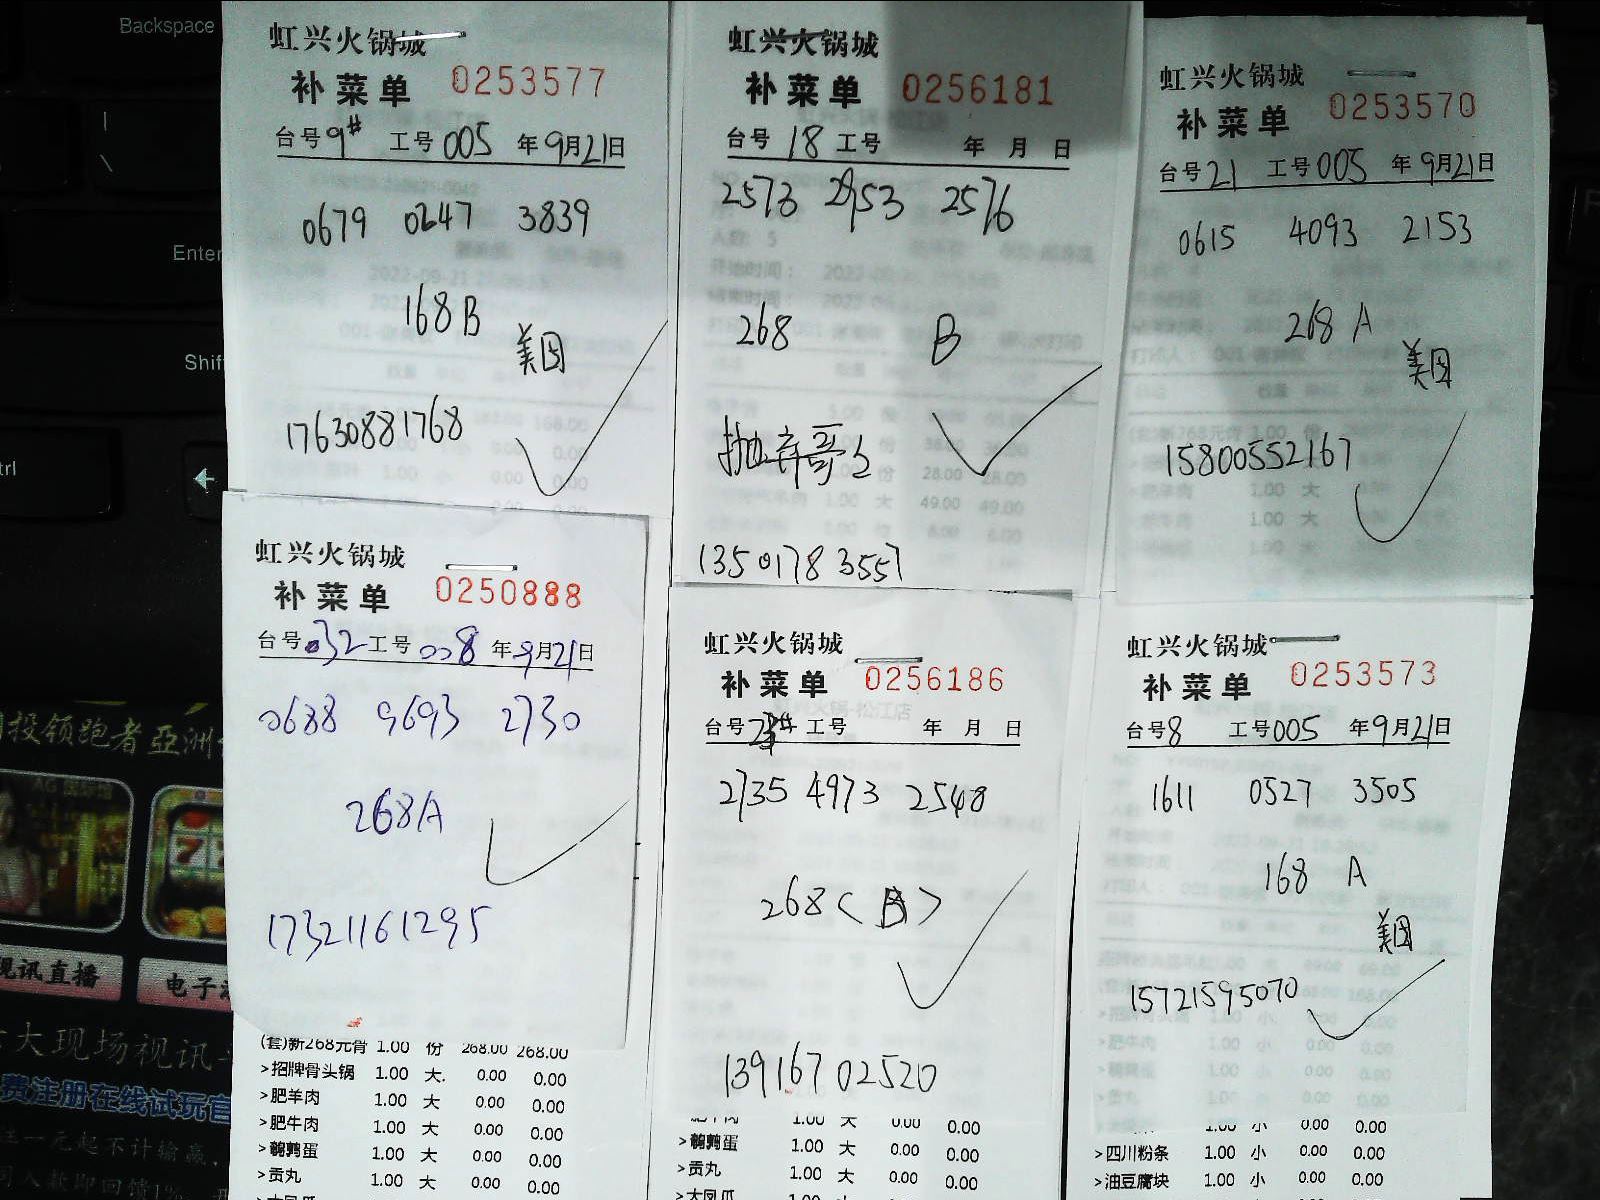 Backspace
Enter
Shift
虹兴火锅城
补菜单 0253577
台号 9# 工号 005 年 9月21日
0679 0247 3839
168 B
美团
17630881768
虹兴火锅城
补菜单 0256181
台号 18 工号 年 月 日
2573 2953 2576
268 B
13501783557
虹兴火锅城
补菜单 0253570
台号 21 工号 005 年 9月21日
0615 4093 2153
268 A
美团
15800552167
虹兴火锅城
补菜单 0250888
台号 032 工号 008 年 9月21日
0688 9693 2730
268A
17321161295
(套)新268元骨 1.00 份 268.00 268.00
>招牌骨头锅 1.00 大. 0.00 0.00
>肥羊肉 1.00 大 0.00 0.00
>肥牛肉 1.00 大 0.00 0.00
>鹌鹑蛋 1.00 大 0.00 0.00
>贡丸 1.00 大 0.00 0.00
虹兴火锅城
补菜单 0256186
台号 工号 年 月 日
2735 4973 2548
268 (B)
13916702520
肥牛肉 1.00 大 0.00 0.00
>鹌鹑蛋 1.00 大 0.00 0.00
>贡丸 1.00 大 0.00 0.00
>大凤爪
虹兴火锅城
补菜单 0253573
台号 8 工号 005 年 9月21日
1611 0527 3505
168 A
美团
15721595070
1.00 小 0.00 0.00
>四川粉条 1.00 小 0.00 0.00
>油豆腐块 1.00 小 0.00 0.00
投领跑者亞洲
视讯直播
电子
大现场视讯
费注册在线试玩官
一元起不计输赢,